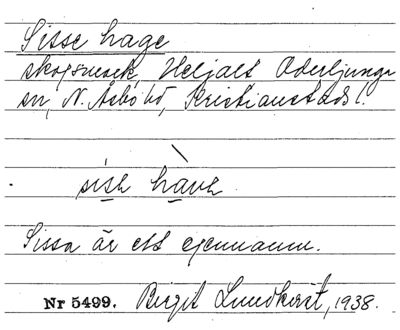 Sisse hage
skogsmark, Heljalt Oderljunga
sn, N. Åsbo hd, Kristianstads l.
sisə hāvə
Sissa är ett egennamn.
Nr 5499. Birgit Lundkvist, 1938.